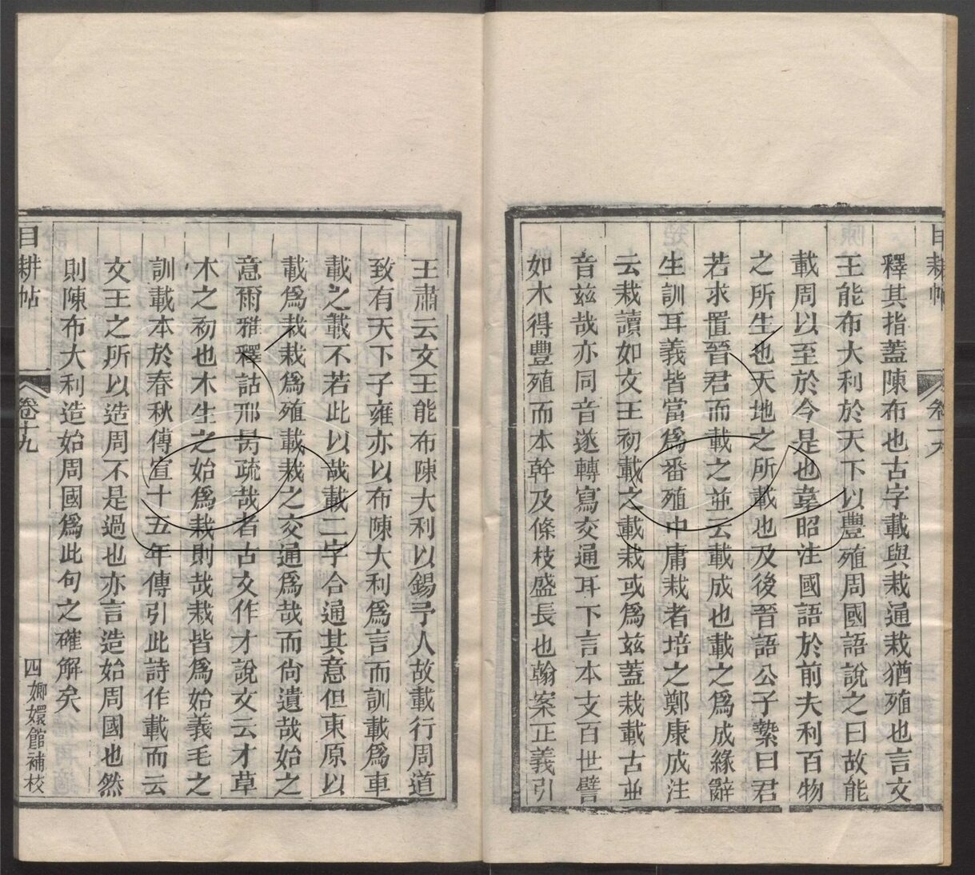 釋其指蓋陳布也古字載與栽通栽猶殖也言文
王能布大利於天下以豐殖周國語說之曰故能
載周以至於今是也韋昭注國語於前夫利百物
之所生也天地之所載也及後晉語公子縶曰君
若求置晉君而載之並云載成也載之爲成緣辭
生訓耳義皆當爲番殖中庸栽者培之鄭康成注
云栽讀如文王初載之載栽或爲兹蓋栽載古並
音兹哉亦同音遂轉寫交通耳下言本支百世譬
如木得豐殖而本幹及條枝盛長也翰案正義引
王肅云文王能布陳大利以錫予人故載行周道
致有天下子雍亦以布陳大利爲言而訓載爲車
載之載不若此以哉載二字合通其意但東原以
載爲栽栽爲殖載栽之交通爲哉而尙遺哉始之
意爾雅釋詁邢昺疏哉者古文作才說文云才草
木之初也木生之始爲栽則哉栽皆爲始義毛之
訓載本於春秋傳宣十五年傳引此詩作載而云
文王之所以造周不是過也亦言造始周國也然
則陳布大利造始周國爲此句之確解矣
目耕帖
卷十九
四
嫏嬛館補校